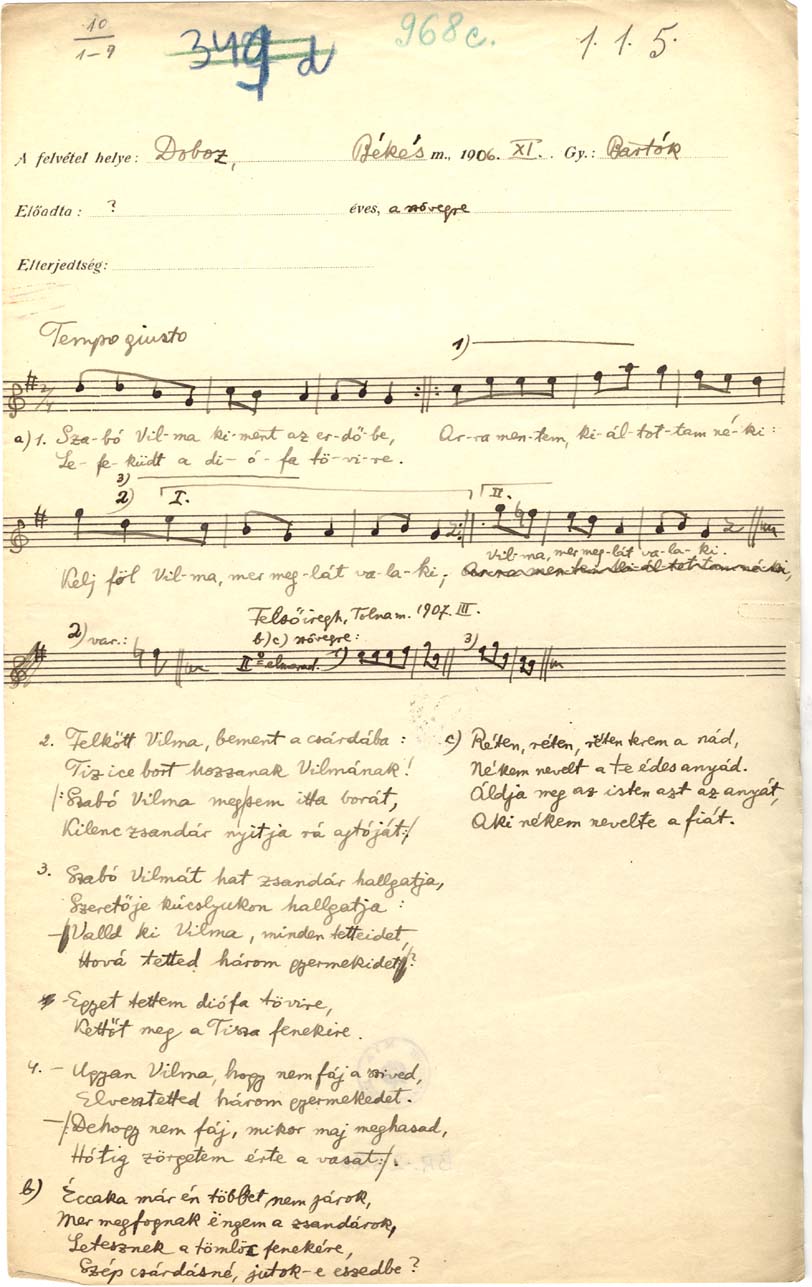 10
1–9
349 d
968c.
1. 1. 5.
A felvétel helye: Doboz, Békés m., 1906. XI. Gy.: Bartók
Előadta: ? éves, a szövegre
Elterjedtség:
Tempo giusto
1)
a) 1. Sza-bó Vil-ma ki-ment az er-dő-be, Ar-ra men-tem, ki-ál-tot-tam né-ki:
Le-fe-küdt a di-ó-fa tö-vi-re.
3)
2) I. II.
Vil-ma, mer meg-lát va-la-ki.
Kelj föl Vil-ma, mer meg-lát va-la-ki; Ar-ra men-tem ki-ál-tot-tam né-ki,
Felsőiregh, Tolnam. 1907. III.
2) var.: b) c) szövegre:
II⁰ elmarad. 1) 3)
2. Felkőtt Vilma, bement a csárdába:
Tiz ice bort hozzanak Vilmának!
/:Szabó Vilma meg sem itta borát,
Kilenc zsandár nyitja rá ajtóját:/
3. Szabó Vilmát hat zsandár hallgatja,
Szeretője kúcslyukon hallgatja:
– Valld ki Vilma, minden tetteidet,
Hová tetted három gyermekidet?
– Egyet tettem diófa tövire,
Kettőt meg a Tisza fenekire.
4. – Ugyan Vilma, hogy nem fáj a szived,
Elvesztetted három gyermekedet.
–/:Dehogy nem fáj, mikor maj meghasad,
Hótig zörgetem érte a vasat:/.
b) Éccaka már én többet nem járok,
Mer megfognak ëngem a zsandárok,
Letesznek a tömlöc fenekére,
Szép csárdásné, jutok-e eszedbe?
c) Réten, réten, réten terem a nád,
Nékem nevelt a te édesanyád.
Áldja meg az isten azt az anyát,
Aki nékem nevelte a fiát.